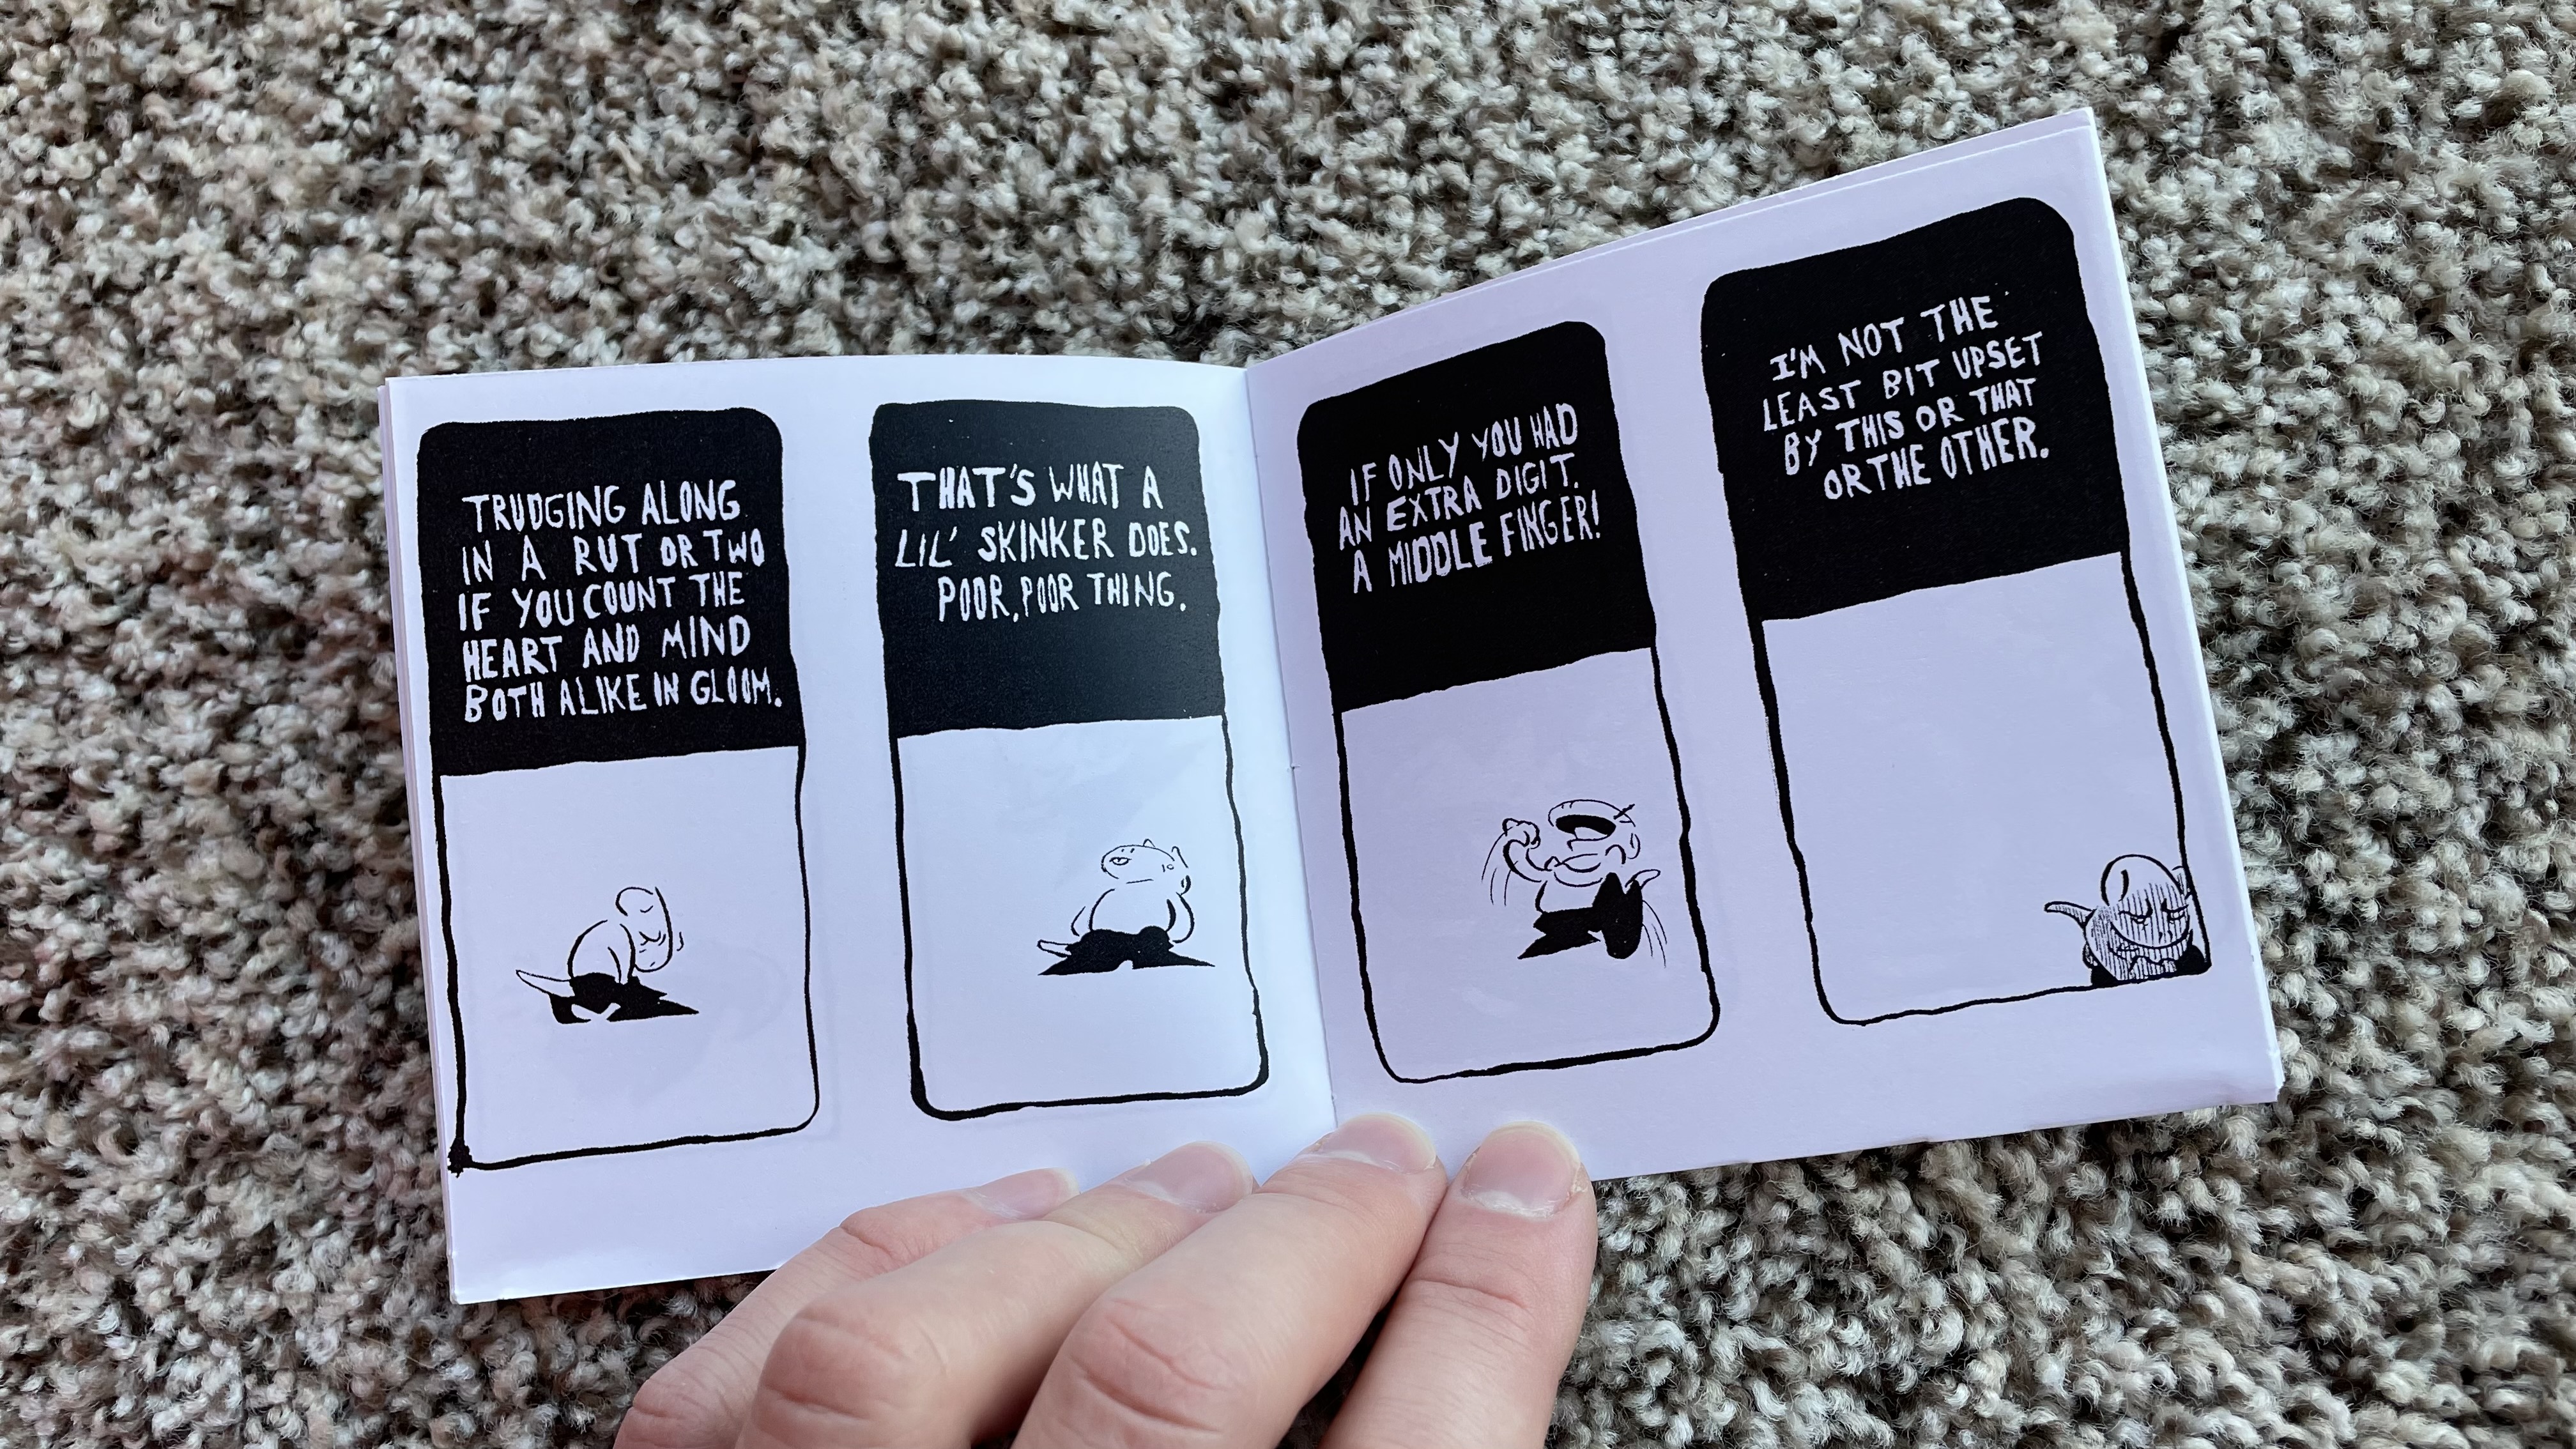 TRUDGING ALONG
IN A RUT OR TWO
IF YOU COUNT THE
HEART AND MIND
BOTH ALIKE IN GLOOM.
THAT'S WHAT A
LIL' SKINKER DOES.
POOR, POOR THING.
IF ONLY YOU HAD
AN EXTRA DIGIT.
A MIDDLE FINGER!
I'M NOT THE
LEAST BIT UPSET
BY THIS OR THAT
OR THE OTHER.